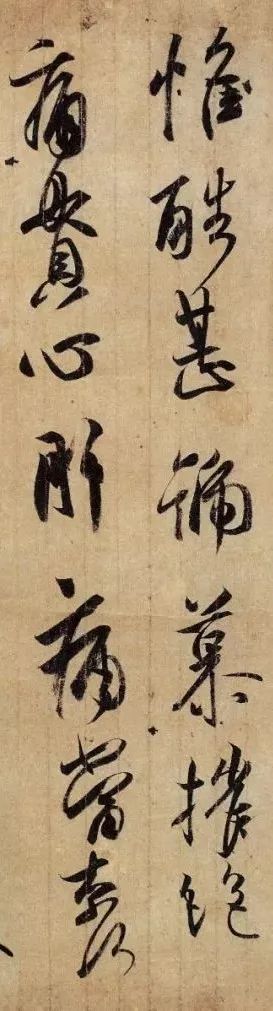 惟酷甚號慕摧絕
痛貫心肝痛當奈何